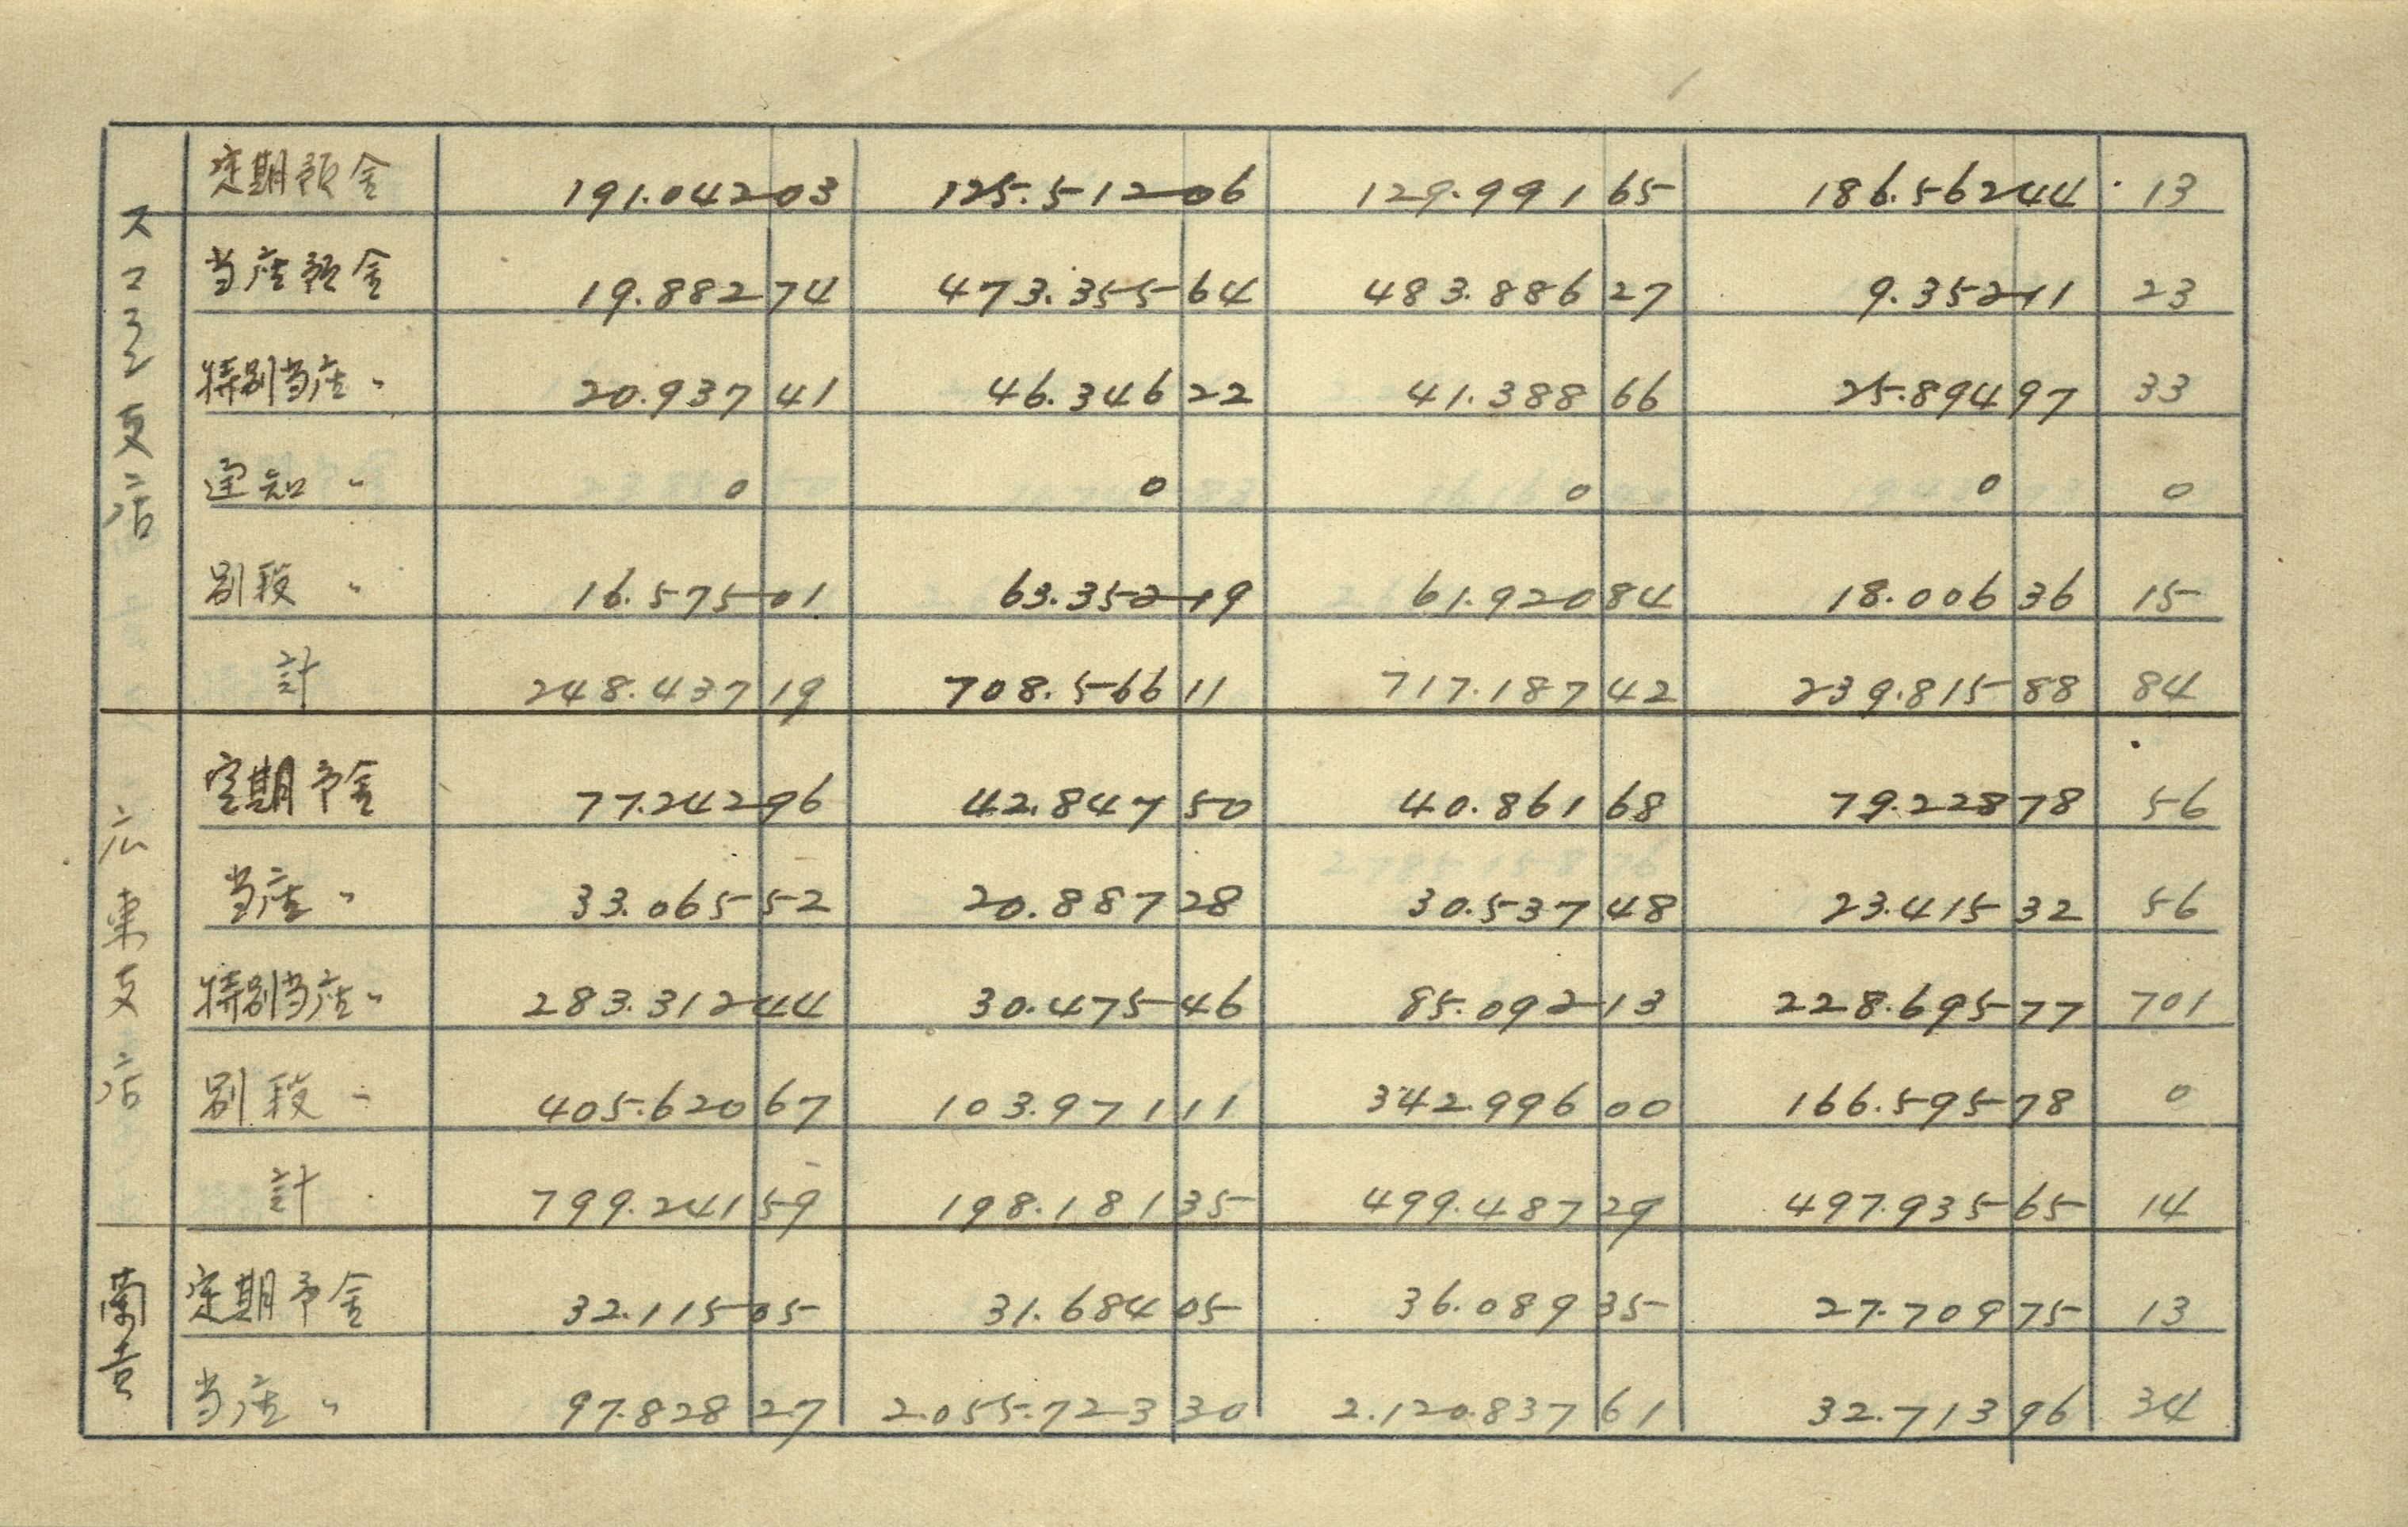 支店
定期預金 191.042 03 125.512 06 129.991 65 186.562 44 13
当座預金 19.882 74 473.355 64 483.886 27 9.352 11 23
特別当座〃 20.937 41 46.346 22 41.388 66 25.894 97 33
通知〃 0 0 0 0 0
別段〃 16.575 01 63.352 19 61.920 84 18.006 36 15
計 248.437 19 708.566 11 717.187 42 239.815 88 84
広東支店
定期予金 77.242 96 42.847 50 40.861 68 79.228 78 56
当座〃 33.065 52 20.887 28 30.537 48 23.415 32 56
特別当座〃 283.312 44 30.475 46 85.092 13 228.695 77 701
別段〃 405.620 67 103.971 11 342.996 00 166.595 78 0
計 799.241 59 198.181 35 499.487 29 497.935 65 14
定期予金 32.115 05 31.684 05 36.089 35 27.709 75 13
当座〃 97.828 27 2.055.723 30 2.120.837 61 32.713 96 34